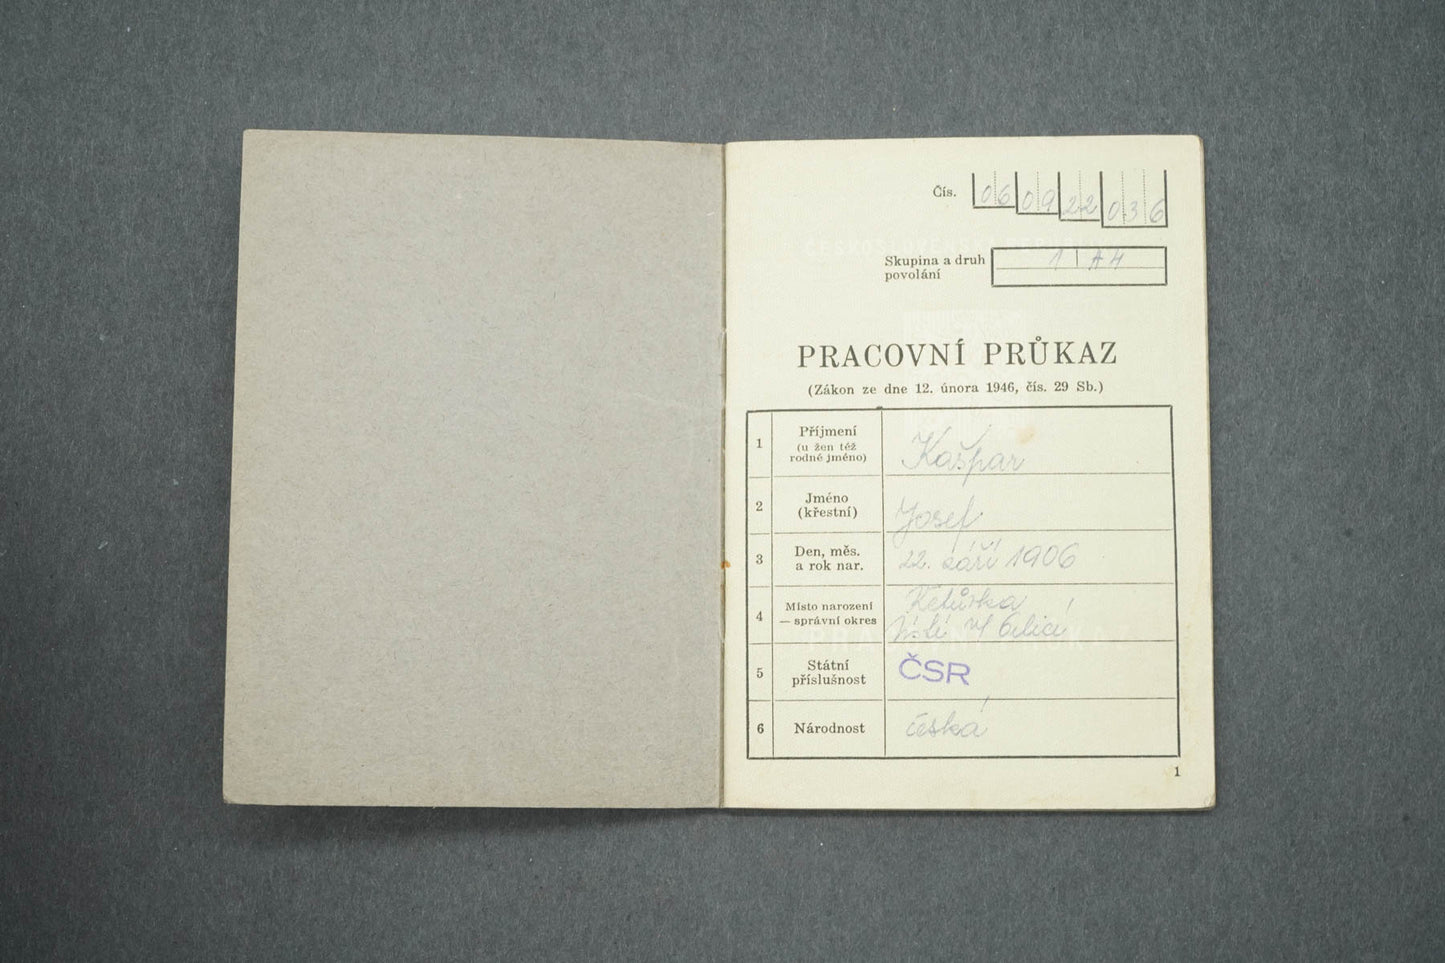 Čís. 06 09 22 036
Skupina a druh
povolání
1 A4
PRACOVNÍ PRŮKAZ
(Zákon ze dne 12. února 1946, čís. 29 Sb.)
1
Příjmení
(u žen též
rodné jméno)
Kašpar
2
Jméno
(křestní)
Josef
3
Den, měs.
a rok nar.
22. září 1906
4
Místo narození
— správní okres
Ústí n/ Orlicí
5
Státní
příslušnost
ČSR
6
Národnost
česká
1